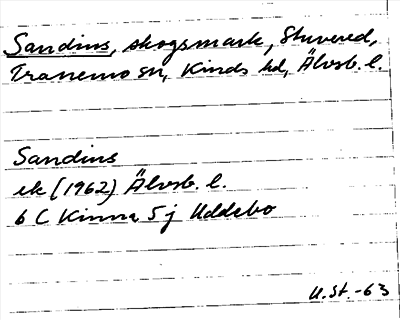 Sandins, skogsmark, Stuvered,
Tranemo sn, Kinds hd, Älvsb. l.
Sandins
ek (1962) Älvsb. l.
6 C Kinna 5j Uddebo
U.St.-63